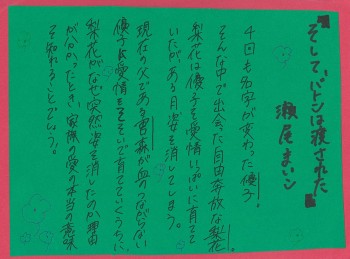 『そして、バトンは渡された』
瀬尾まいこ
4回も名字が変わった優子。
そんな中で出会った自由奔放な梨花。
梨花は優子を愛情いっぱいに育てて
いたがある日姿を消してしまう。
現在の父である森宮が血のつながらない
優子に愛情をそそいで育てていくうちに、
梨花がなぜ突然姿を消したのか理由
が分かったとき、家族の愛の本当の意味
を知ることでしょう。